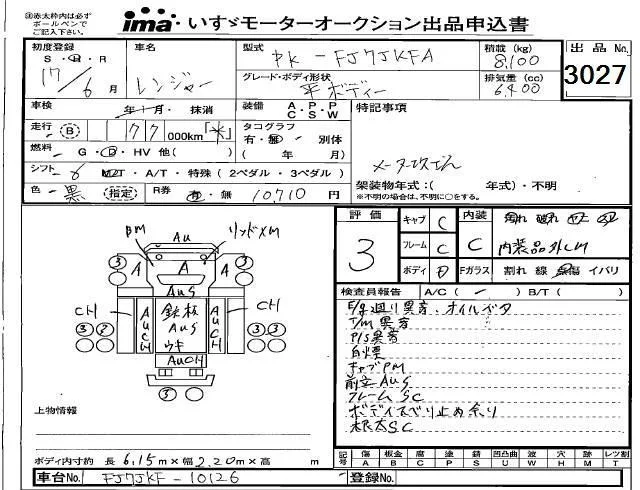 ㊟赤太枠内は必ず
ボールペンで
ご記入下さい。
ima いすゞモーターオークション出品申込書
初度登録 S・H・R 17/6 月
車名 レンジャー
型式 PK-FJ7JKFA
積載(kg) 8,100
出品No. 3027
グレード・ボディ形状 平ボディー
排気量(cc) 6,400
車検 年 月・抹消
装備 A・P・P C・S・W
特記事項
走行 B 77 000km
タコグラフ 有・無・別体
( 年 月)
燃料 G・D・HV 他( )
シフト 6 MT・A/T・特殊(2ペダル・3ペダル)
架装物年式:( 年式)・不明
※不明の場合は、不明に○をする。
色 黒 (指定)
R券 有・無 10710 円
評価 3
キャブ C
フレーム C
ボディ D
内装 C 内装品外しM
Fガラス 割れ 線 点傷 イバリ
PM Au リッドメM
3 A A A 3
AuS
CH AUCH 鉄板 AuS ウキ AUCH CH
3 2 3 3
AuCH
3
検査員報告 A/C( - ) B/T( )
E/g廻り異音、オイルベタ
T/M異音
P/S異音
白煙
キャブPM
前立AuS
フレームSC
ボディスベリ止め余り
根太SC
上物情報
ボディ内寸約 長 6.15m×幅 2.20m×高 m
記号 傷A 板金B 腐C 塗P 錆S 凹凸曲U 波W 穴H 跡M レツ割T
車台No. FJ7JKF-10126
登録No.